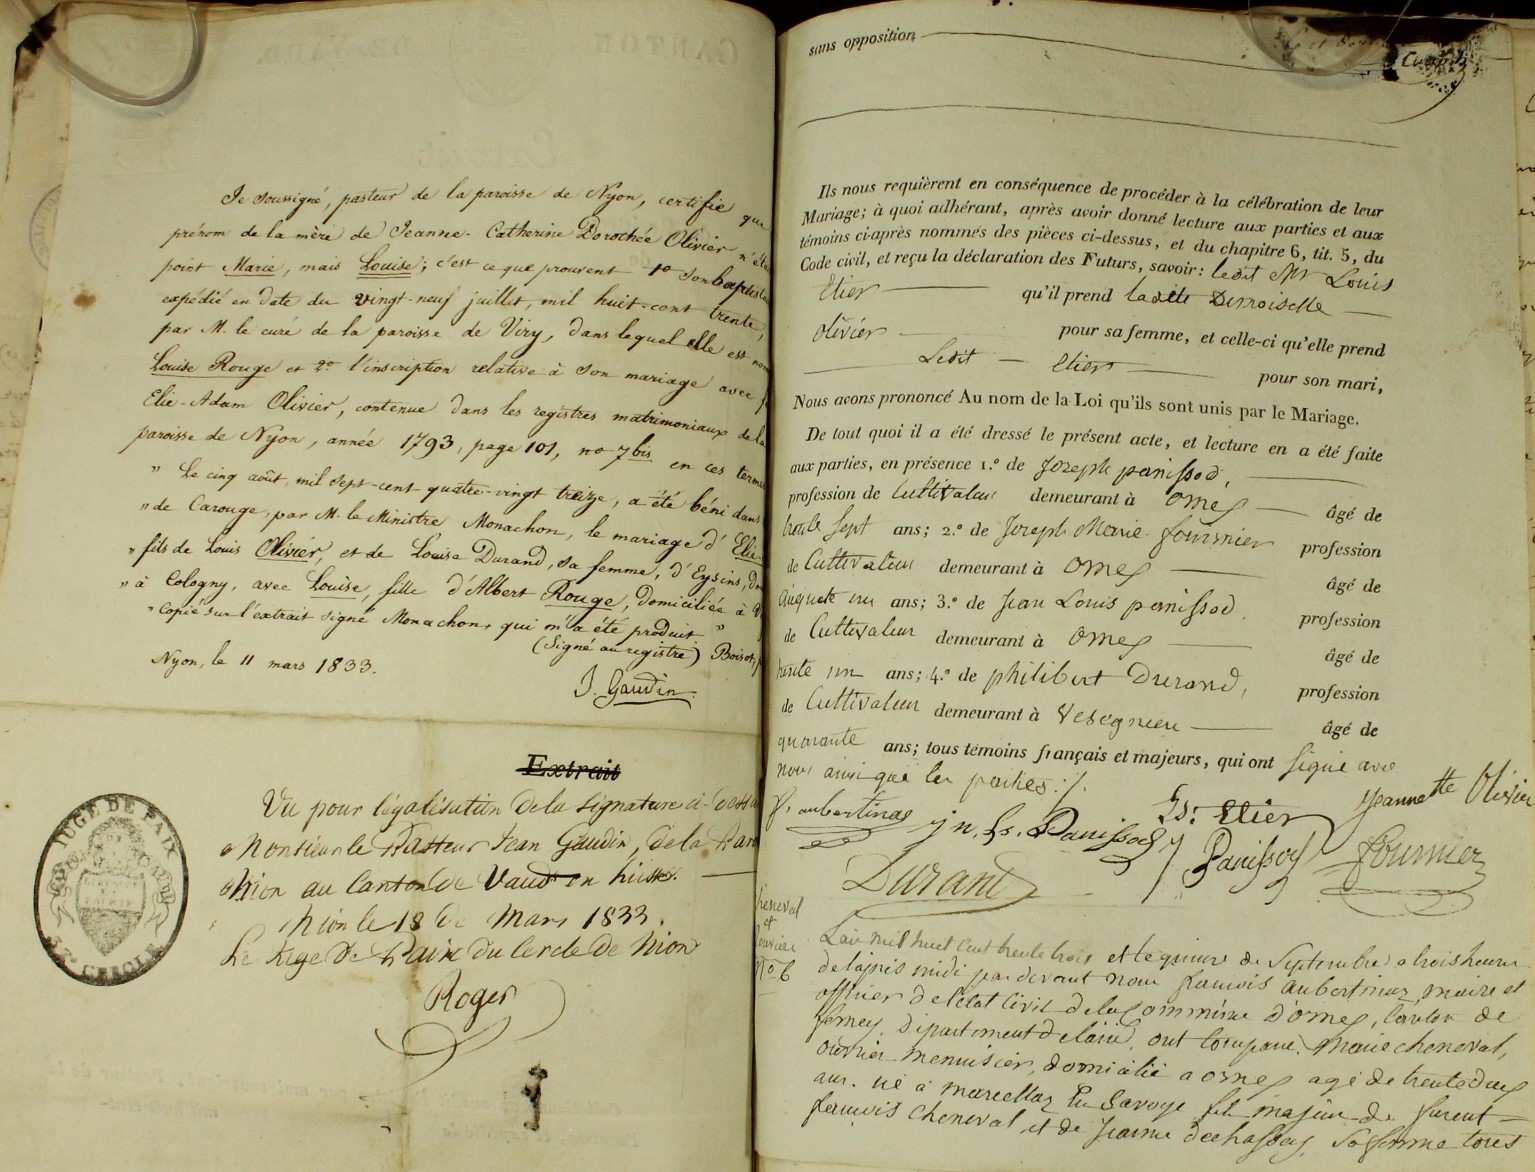 Je soussigné, pasteur de la paroisse de Nyon, certifie que
prénom de la mère de Jeanne-Catherine Dorothée Olivier n'ét
point Marie, mais Louise; c'est ce que prouvent 1o son baptis
expédié en date du vingt-neuf juillet, mil huit-cent trente,
par M. le curé de la paroisse de Viry, dans lequel elle est nom
Louise Rouge et 2o l'inscription relative à son mariage avec
Elie-Adam Olivier, contenue dans les registres matrimoniaux de la
paroisse de Nyon, année 1793, page 101, no 7 bis en ces terme
" Le cinq août, mil sept-cent quatre-vingt treize, a été béni dans
" de Carouge, par M. le Ministre Monachon, le mariage d'Elie
" fils de Louis Olivier, et de Louise Durand, sa femme, d'Eysins, do
" à Cologny, avec Louise, fille d'Albert Rouge, domiciliée à
" Copié sur l'extrait signé Monachon, qui m'a été produit "
(Signé au registre) Boisot,
Nyon, le 11 mars 1833.
J. Gaudin.
Extrait
Vu pour légalisation de la signature ci-dessu
Monsieur le Pasteur Jean Gaudin, de la Par
Nion au Canton de Vaud en Suisse.
Nion le 18 de Mars 1833.
Le Juge De Paix du Cercle de Nion
Roger
JUGE DE PAIX
CERCLE
sans opposition
Ils nous requièrent en conséquence de procéder à la célébration de leur
Mariage; à quoi adhérant, après avoir donné lecture aux parties et aux
témoins ci-après nommés des pièces ci-dessus, et du chapitre 6, tit. 5, du
Code civil, et reçu la déclaration des Futurs, savoir: ledit Mr Louis
Elier qu'il prend ladite Demoiselle
Olivier pour sa femme, et celle-ci qu'elle prend
Ledit Elier pour son mari,
Nous avons prononcé Au nom de la Loi qu'ils sont unis par le Mariage.
De tout quoi il a été dressé le présent acte, et lecture en a été faite
aux parties, en présence 1.º de Joseph panissod,
profession de Cultivateur demeurant à Ornex âgé de
trente sept ans; 2.º de Joseph Marie fournier profession
de Cultivateur demeurant à Ornex âgé de
Cinquante un ans; 3.º de Jean Louis panissod profession
de Cultivateur demeurant à Ornex âgé de
trente un ans; 4.º de philibert Durand, profession
de Cultivateur demeurant à Vesegnieu âgé de
quarante ans; tous témoins français et majeurs, qui ont signé avec
nous ainsi que les parties ./.
f. aubertinaz Ls: Elier Jeannette Olivier
jn. Ls. Panissod Panissod fournier
Durant
Cheneval
et
No 6
L'an mil huit Cent trente trois et le quinze de Septembre a trois heures
de l'après midi par devant nous françois aubertinaz, maire et
officier de l'état Civil de la Commune d'Ornex, Canton de
ferney, Département de l'ain, ont Comparu, Marie cheneval,
ouvrier menuisier, domicilié a ornex agé de trente deux
ans. né à marcellaz En Savoye fils majeur de furent
françois cheneval, et de Jeanne dechassey, sa femme tous